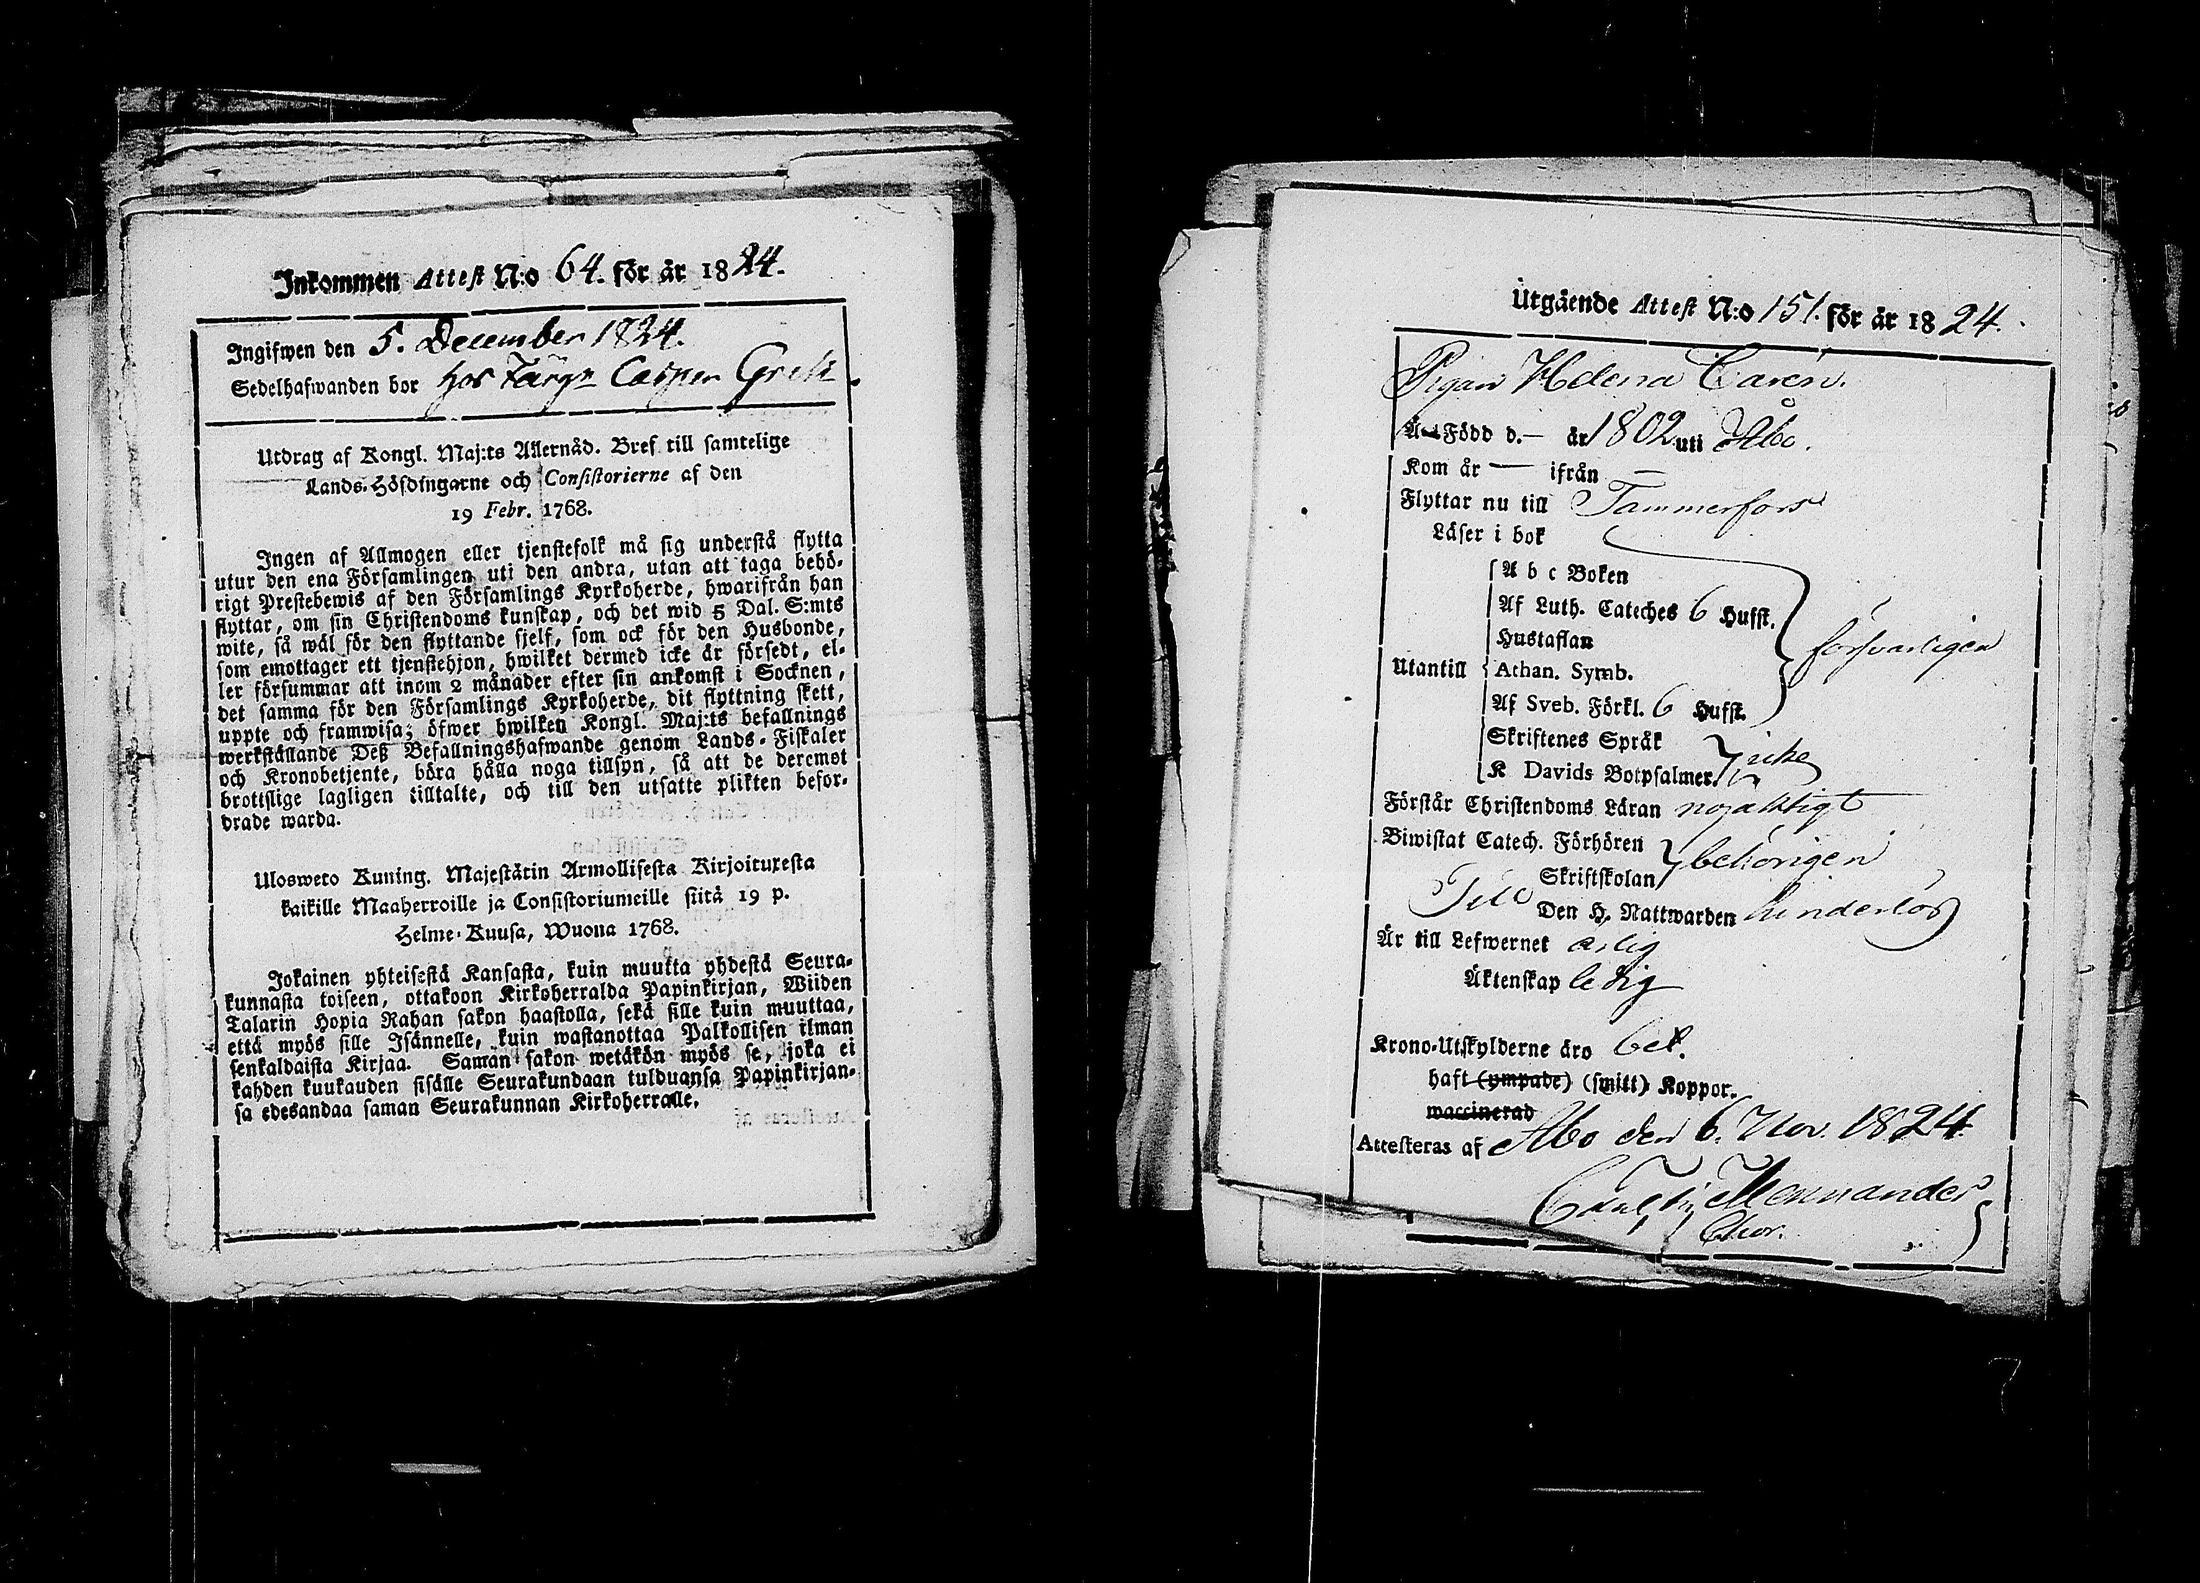 Inkommen Attest N:o 64. för år 1824.
Ingifwen den 5. December 1824.
Sedelhafwanden bor hos Färg: Casper Grek.
Utdrag af Kongl. Maj:ts Allernåd. Bref till samtelige
Lands-Höfdingarne och Consistorierne af den
19 Febr. 1768.
Ingen af Allmogen eller tjenstefolk må sig understå flytta
utur den ena Församlingen uti den andra, utan att taga behö-
rigt Prestebewis af den Församlings Kyrkoherde, hwarifrån han
flyttar, om sin Christendoms kunskap, och det wid 5 Dal. S:mts
wite, så wäl för den flyttande sjelf, som ock för den Husbonde,
som emottager ett tjenstehjon, hwilket dermed icke är försedt, el-
ler försummar att inom 2 månader efter sin ankomst i Socknen,
det samma för den Församlings Kyrkoherde, dit flyttning skett,
uppte och framwisa; öfwer hwilken Kongl. Maj:ts befallnings
werkställande Deß Befallningshafwande genom Lands-Fiskaler
och Kronobetjente, böra hålla noga tillsyn, så att de deremot
brottslige lagligen tilltalte, och till den utsatte plikten befor-
drade warda.
Ulosweto Kuning. Majestätin Armollisesta Kirjoituxesta
kaikille Maaherroille ja Consistoriumeille siitä 19 p.
Helme-Kuusa, Wuona 1768.
Jokainen yhteisestä Kansasta, kuin muutta yhdestä Seura-
kunnasta toiseen, ottakoon Kirkoherralda Papinkirjan, Wiiden
Talarin Hopia Rahan sakon haastolla, sekä sille kuin muuttaa,
että myös sille Isännelle, kuin wastanottaa Palkollisen ilman
senkaldaista Kirjaa. Saman sakon wetäkön myös se, joka ei
kahden kuukauden sisälle Seurakundaan tulduansa Papinkirjan-
sa edesandaa saman Seurakunnan Kirkoherralle.
Utgående Attest N:o 151. för år 1824.
Pigan Helena Carén.
Född d. — år 1802 uti Åbo.
Kom år — ifrån —
Flyttar nu till Tammerfors
Läser i bok
A b c Boken
Af Luth. Cateches 6 Hufst.
Hustaflan
försvarligen
Utantill Athan. Symb.
Af Sveb. Förkl. 6 Hufst.
Skriftenes Språk
icke
K Davids Botpsalmer.
Förstår Christendoms Läran nojaktigt
Biwistat Catech. Förhören
behörigen
Skriftskolan
Till Den H. Nattwarden hinderlös
Är till Lefwernet ärlig
Äktenskap ledig
Krono-Utskylderne äro bet.
haft (ympade) (smitt) Koppor.
waccinerad
Attesteras af Åbo den 6. Nov. 1824.
Mennander